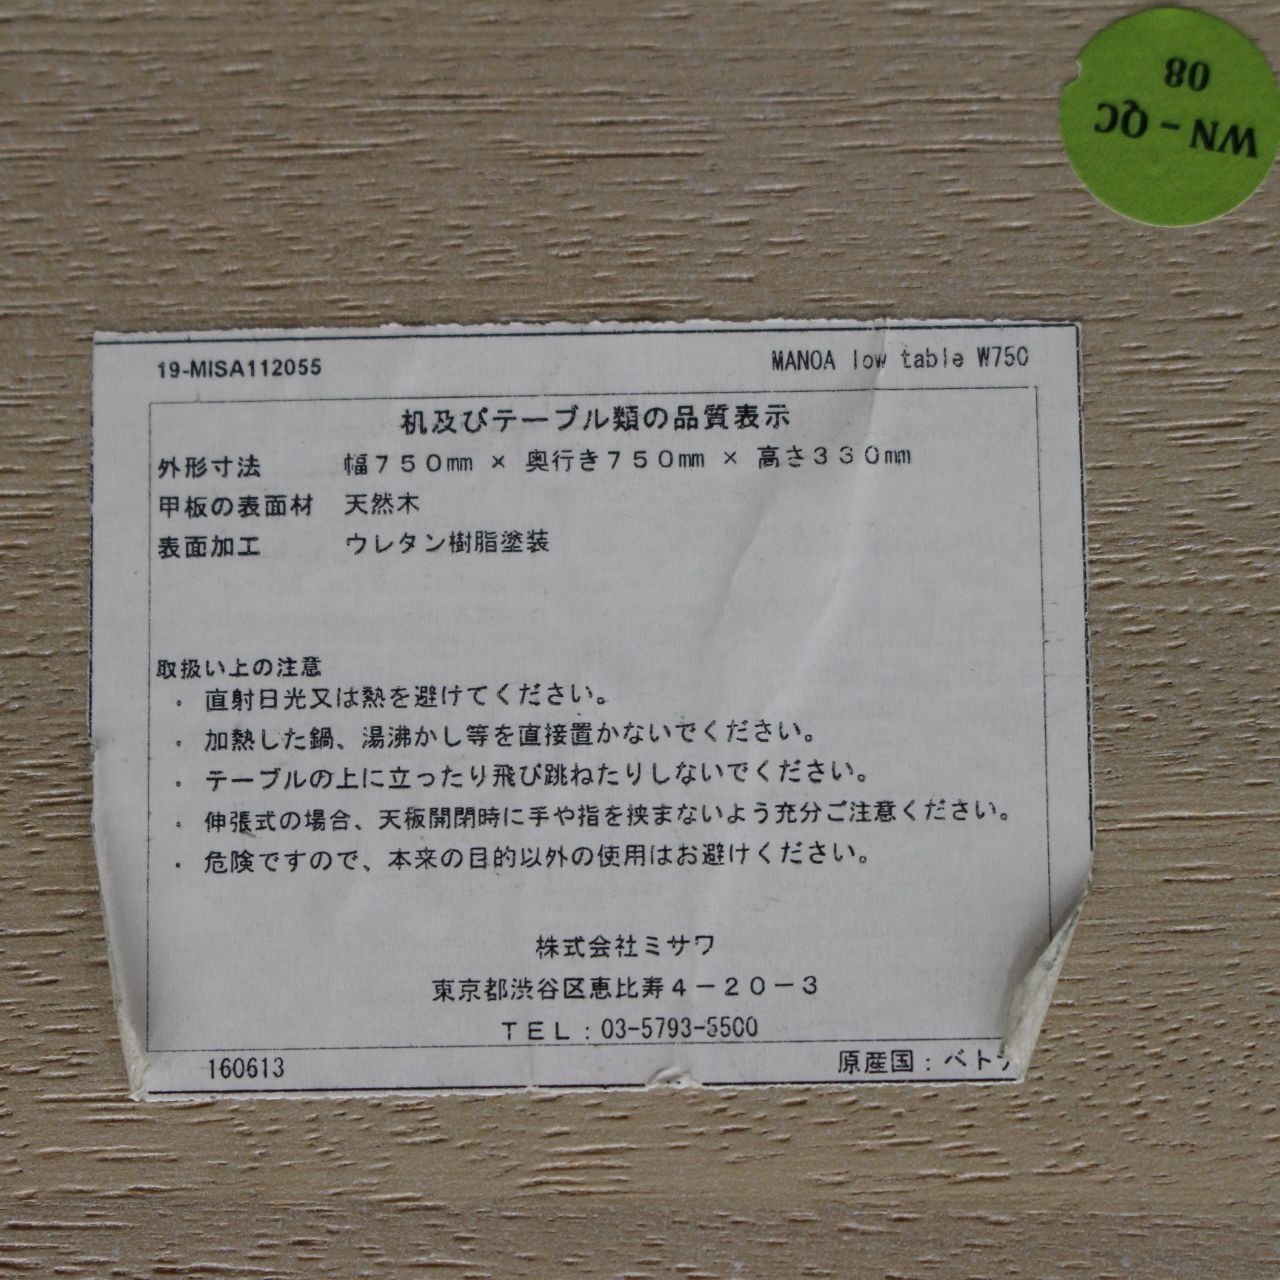 WN-QC
08
19-MISA112055 MANOA low table W750
机及びテーブル類の品質表示
外形寸法 幅750mm × 奥行き750mm × 高さ330mm
甲板の表面材 天然木
表面加工 ウレタン樹脂塗装
取扱い上の注意
・ 直射日光又は熱を避けてください。
・ 加熱した鍋、湯沸かし等を直接置かないでください。
・ テーブルの上に立ったり飛び跳ねたりしないでください。
・ 伸張式の場合、天板開閉時に手や指を挟まないよう充分ご注意ください。
・ 危険ですので、本来の目的以外の使用はお避けください。
株式会社ミサワ
東京都渋谷区恵比寿4-20-3
TEL:03-5793-5500
160613 原産国:ベト